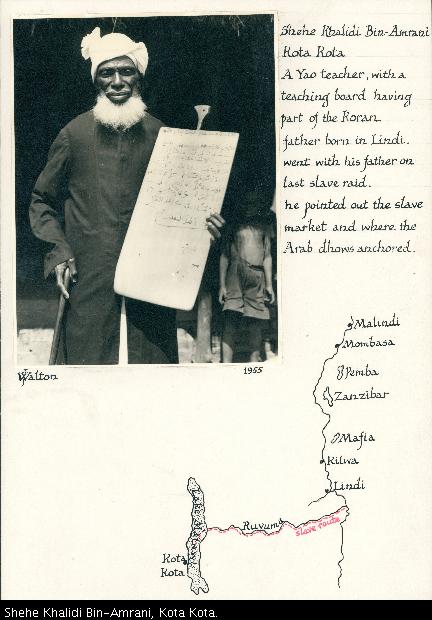 Shehe Khalidi Bin-Amrani
Kota Kota
A Yao teacher, with a
teaching board having
part of the Koran
father born in Lindi.
went with his father on
last slave raid.
he pointed out the slave
market and where the
Arab dhows anchored.
Walton
1955
Malindi
Mombasa
Pemba
Zanzibar
Mafia
Kilwa
Lindi
Ruvuma
slave route
Kota
Kota
Shehe Khalidi Bin-Amrani, Kota Kota.